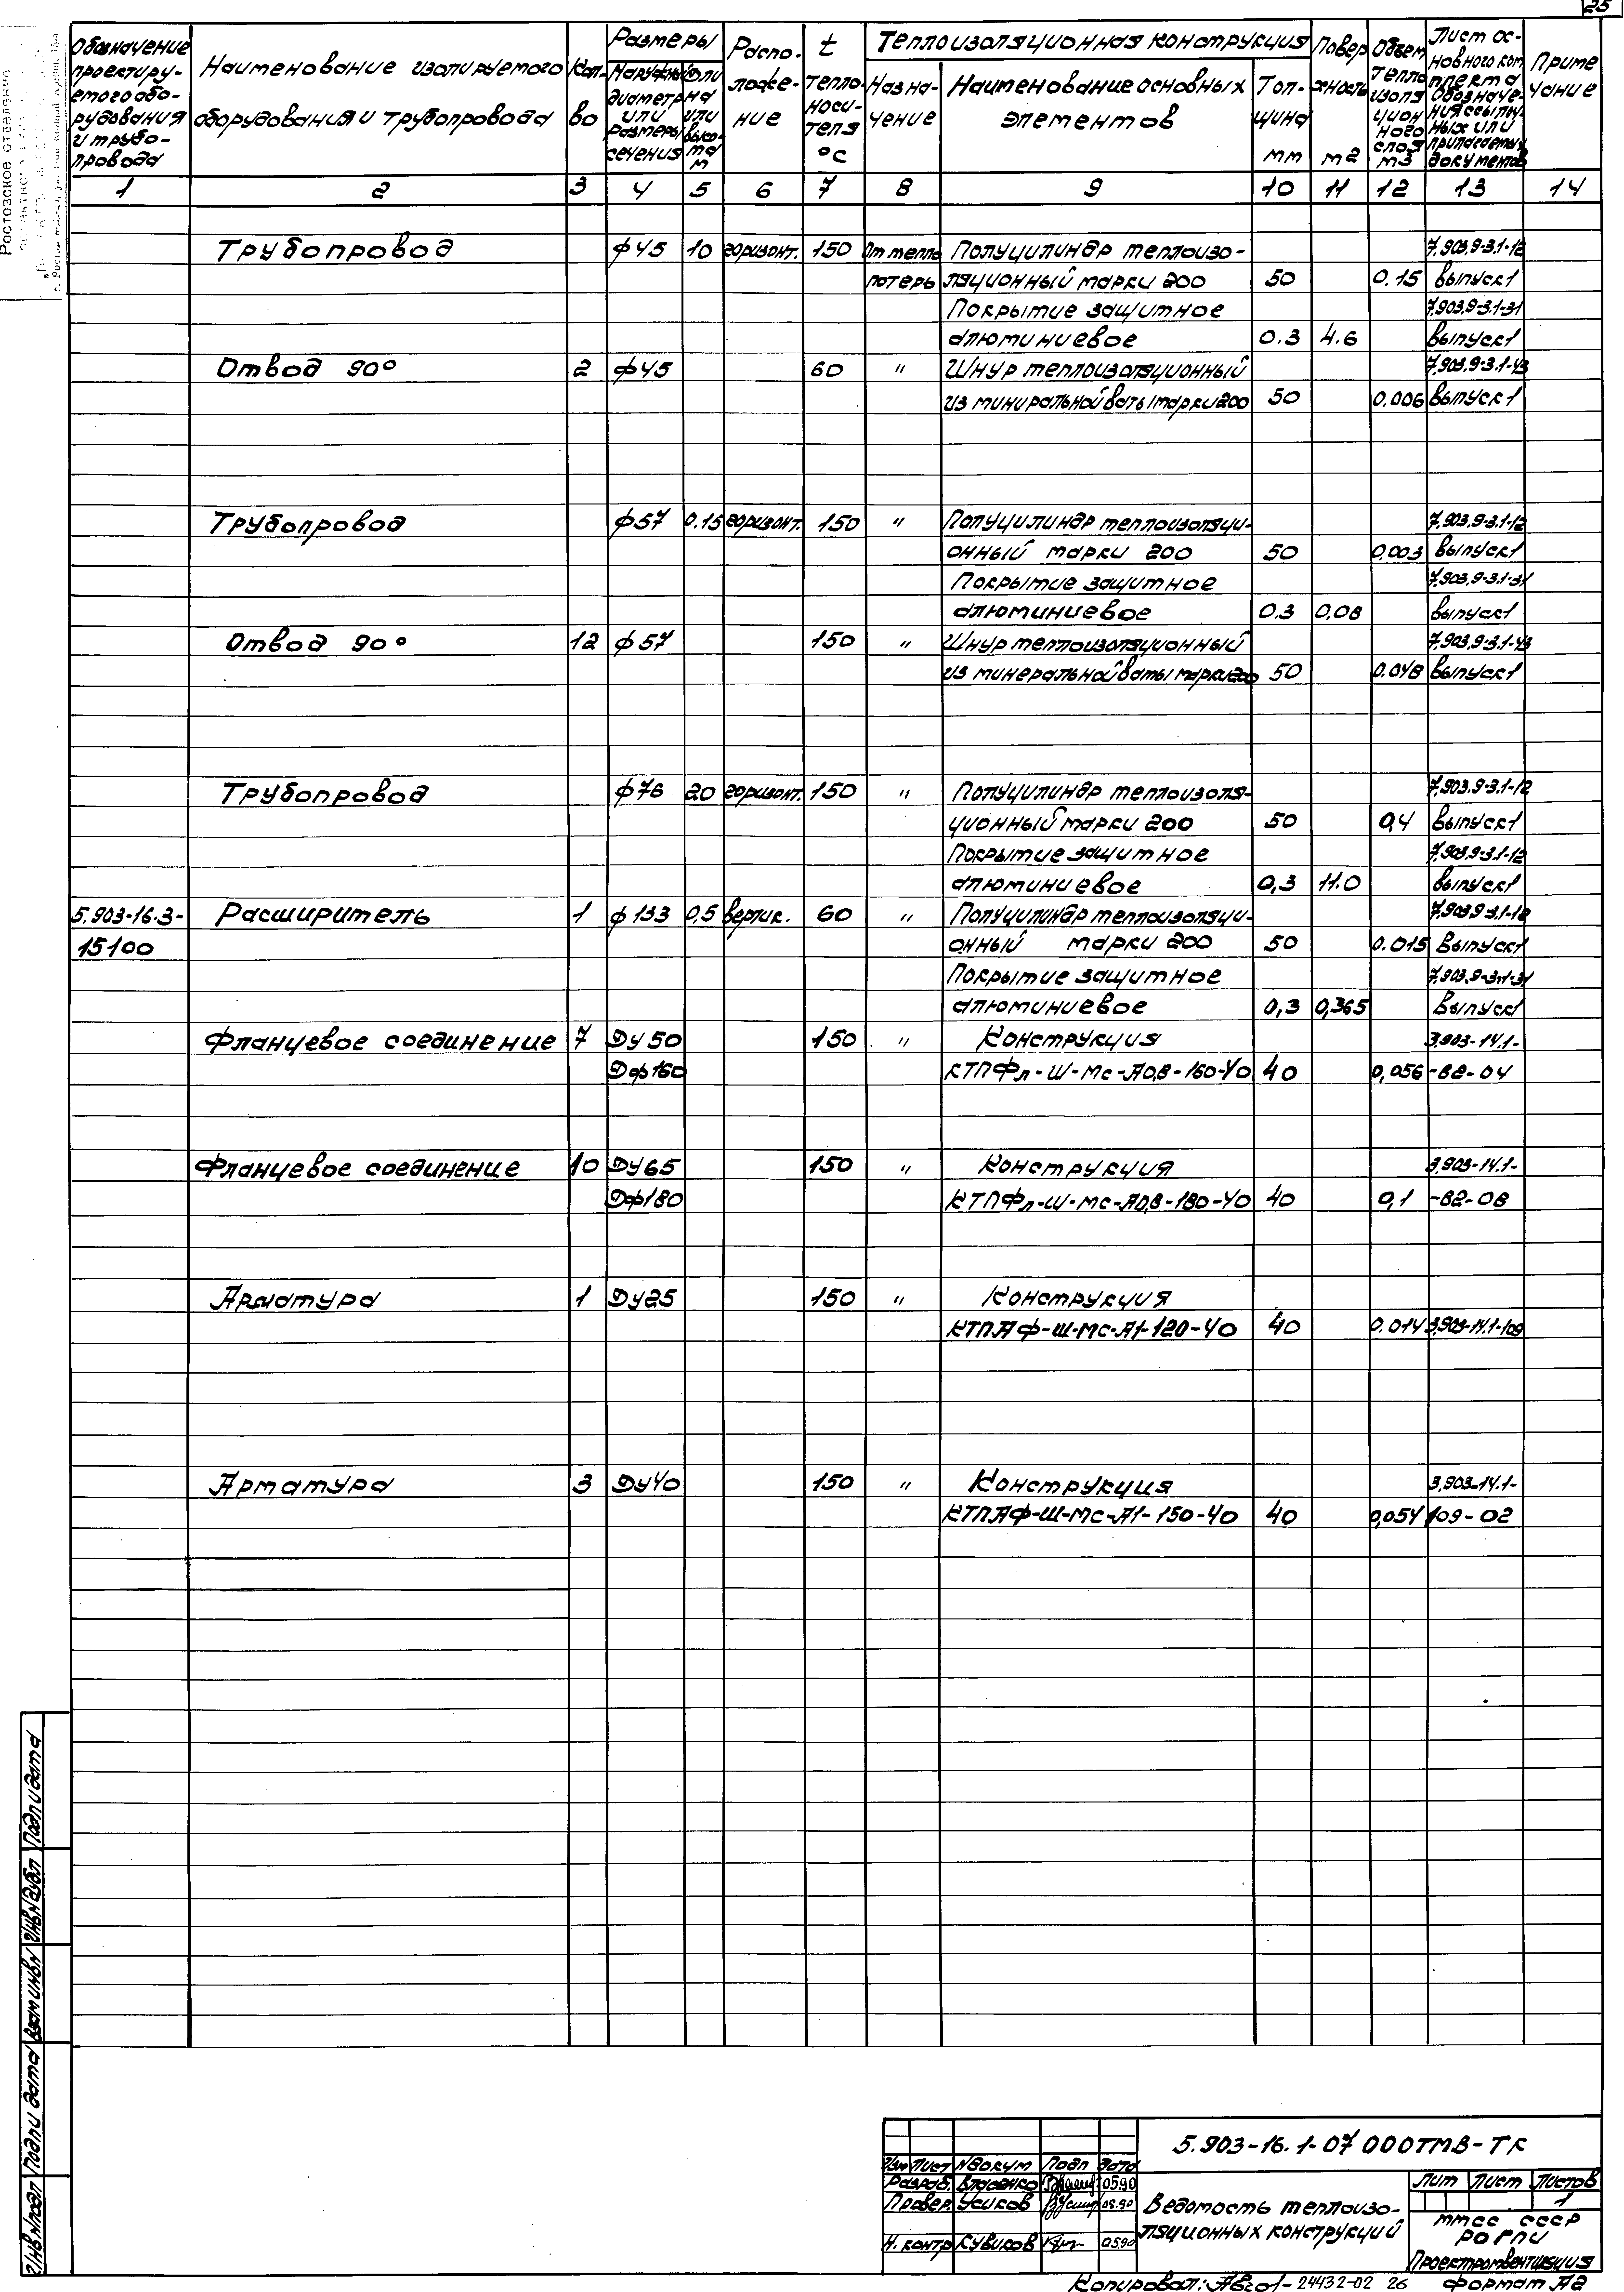 25
Обозначение проектируемого оборудования и трубопровода
Наименование изолируемого оборудования и трубопровода
Кол-во
Размеры
Наружный диаметр или размеры сечения
или высота м
Расположение
t теплоносителя °С
Теплоизоляционная конструкция
Назначение
Наименование основных элементов
Толщина мм
Поверхность м2
Объем теплоизоляционного слоя м3
Лист основного комплекта Обозначения ссылочных или прилагаемых документов
Примечание
1 2 3 4 5 6 7 8 9 10 11 12 13 14
Трубопровод ф45 10 горизонт. 150 От тепло Полуцилиндр теплоизо- 7.903.9-3.1-12
потерь ляционный марки 200 50 0.15 выпуск1
Покрытие защитное 7.903.9-3.1-31
алюминиевое 0.3 4.6 выпуск1
Отвод 90° 2 ф45 60 " Шнур теплоизоляционный 7.903.9-3.1-43
из миниральной ваты марки 200 50 0.006 выпуск1
Трубопровод ф57 0.15 горизонт. 150 " Полуцилиндр теплоизоляци- 7.903.9-3.1-12
онный марки 200 50 0,003 выпуск1
Покрытие защитное 7.903.9-3.1-31
алюминиевое 0.3 0,08 выпуск1
Отвод 90° 12 ф57 150 " Шнур теплоизоляционный 7.903.9-3.1-43
из минеральной ваты марки 200 50 0.048 выпуск1
Трубопровод ф76 20 горизонт. 150 " Полуцилиндр теплоизоля- 7.903.9-3.1-12
ционный марки 200 50 0,4 выпуск1
Покрытие защитное 7.903.9-3.1-12
алюминиевое 0,3 11.0 выпуск1
5.903-16.3- Расширитель 1 ф133 0,5 вертик. 60 " Полуцилиндр теплоизоляци- 7.903.9-3.1-12
15100 онный марки 200 50 0.015 Выпуск1
Покрытие защитное 7.903.9-3.1-31
алюминиевое 0,3 0,365 Выпуск1
Фланцевое соединение 7 Ду50 150 " Конструкция 3.903-14.1-
Дф160 КТПФл-Ш-МС-А0,8-160-40 40 0,056 -82-04
Фланцевое соединение 10 Ду65 150 " Конструкция 3.903-14.1-
Дф180 КТПФл-Ш-МС-А0,8-180-40 40 0,1 -82-08
Арматура 1 Ду25 150 " Конструкция
КТПАФ-Ш-МС-А1-120-40 40 0.014 3.903-14.1-109
Арматура 3 Ду40 150 " Конструкция 3.903-14.1-
КТПАФ-Ш-МС-А1-150-40 40 0,054 109-02
Инв N подл Подп и дата Взам инв N Инв N дубл Подп и дата
5.903-16.1-07 000ТМВ-ТК
Изм Лист N докум Подп Дата
Разраб. Власенко 05.90
Провер. Усиков 05.90
Н. контр Кувиков 05.90
Ведомость теплоизо-
ляционных конструкций
Лит Лист Листов
1
ММСС СССР
РОГПИ
Проектпромвентиляция
Копировал: 24432-02 26 Формат А2